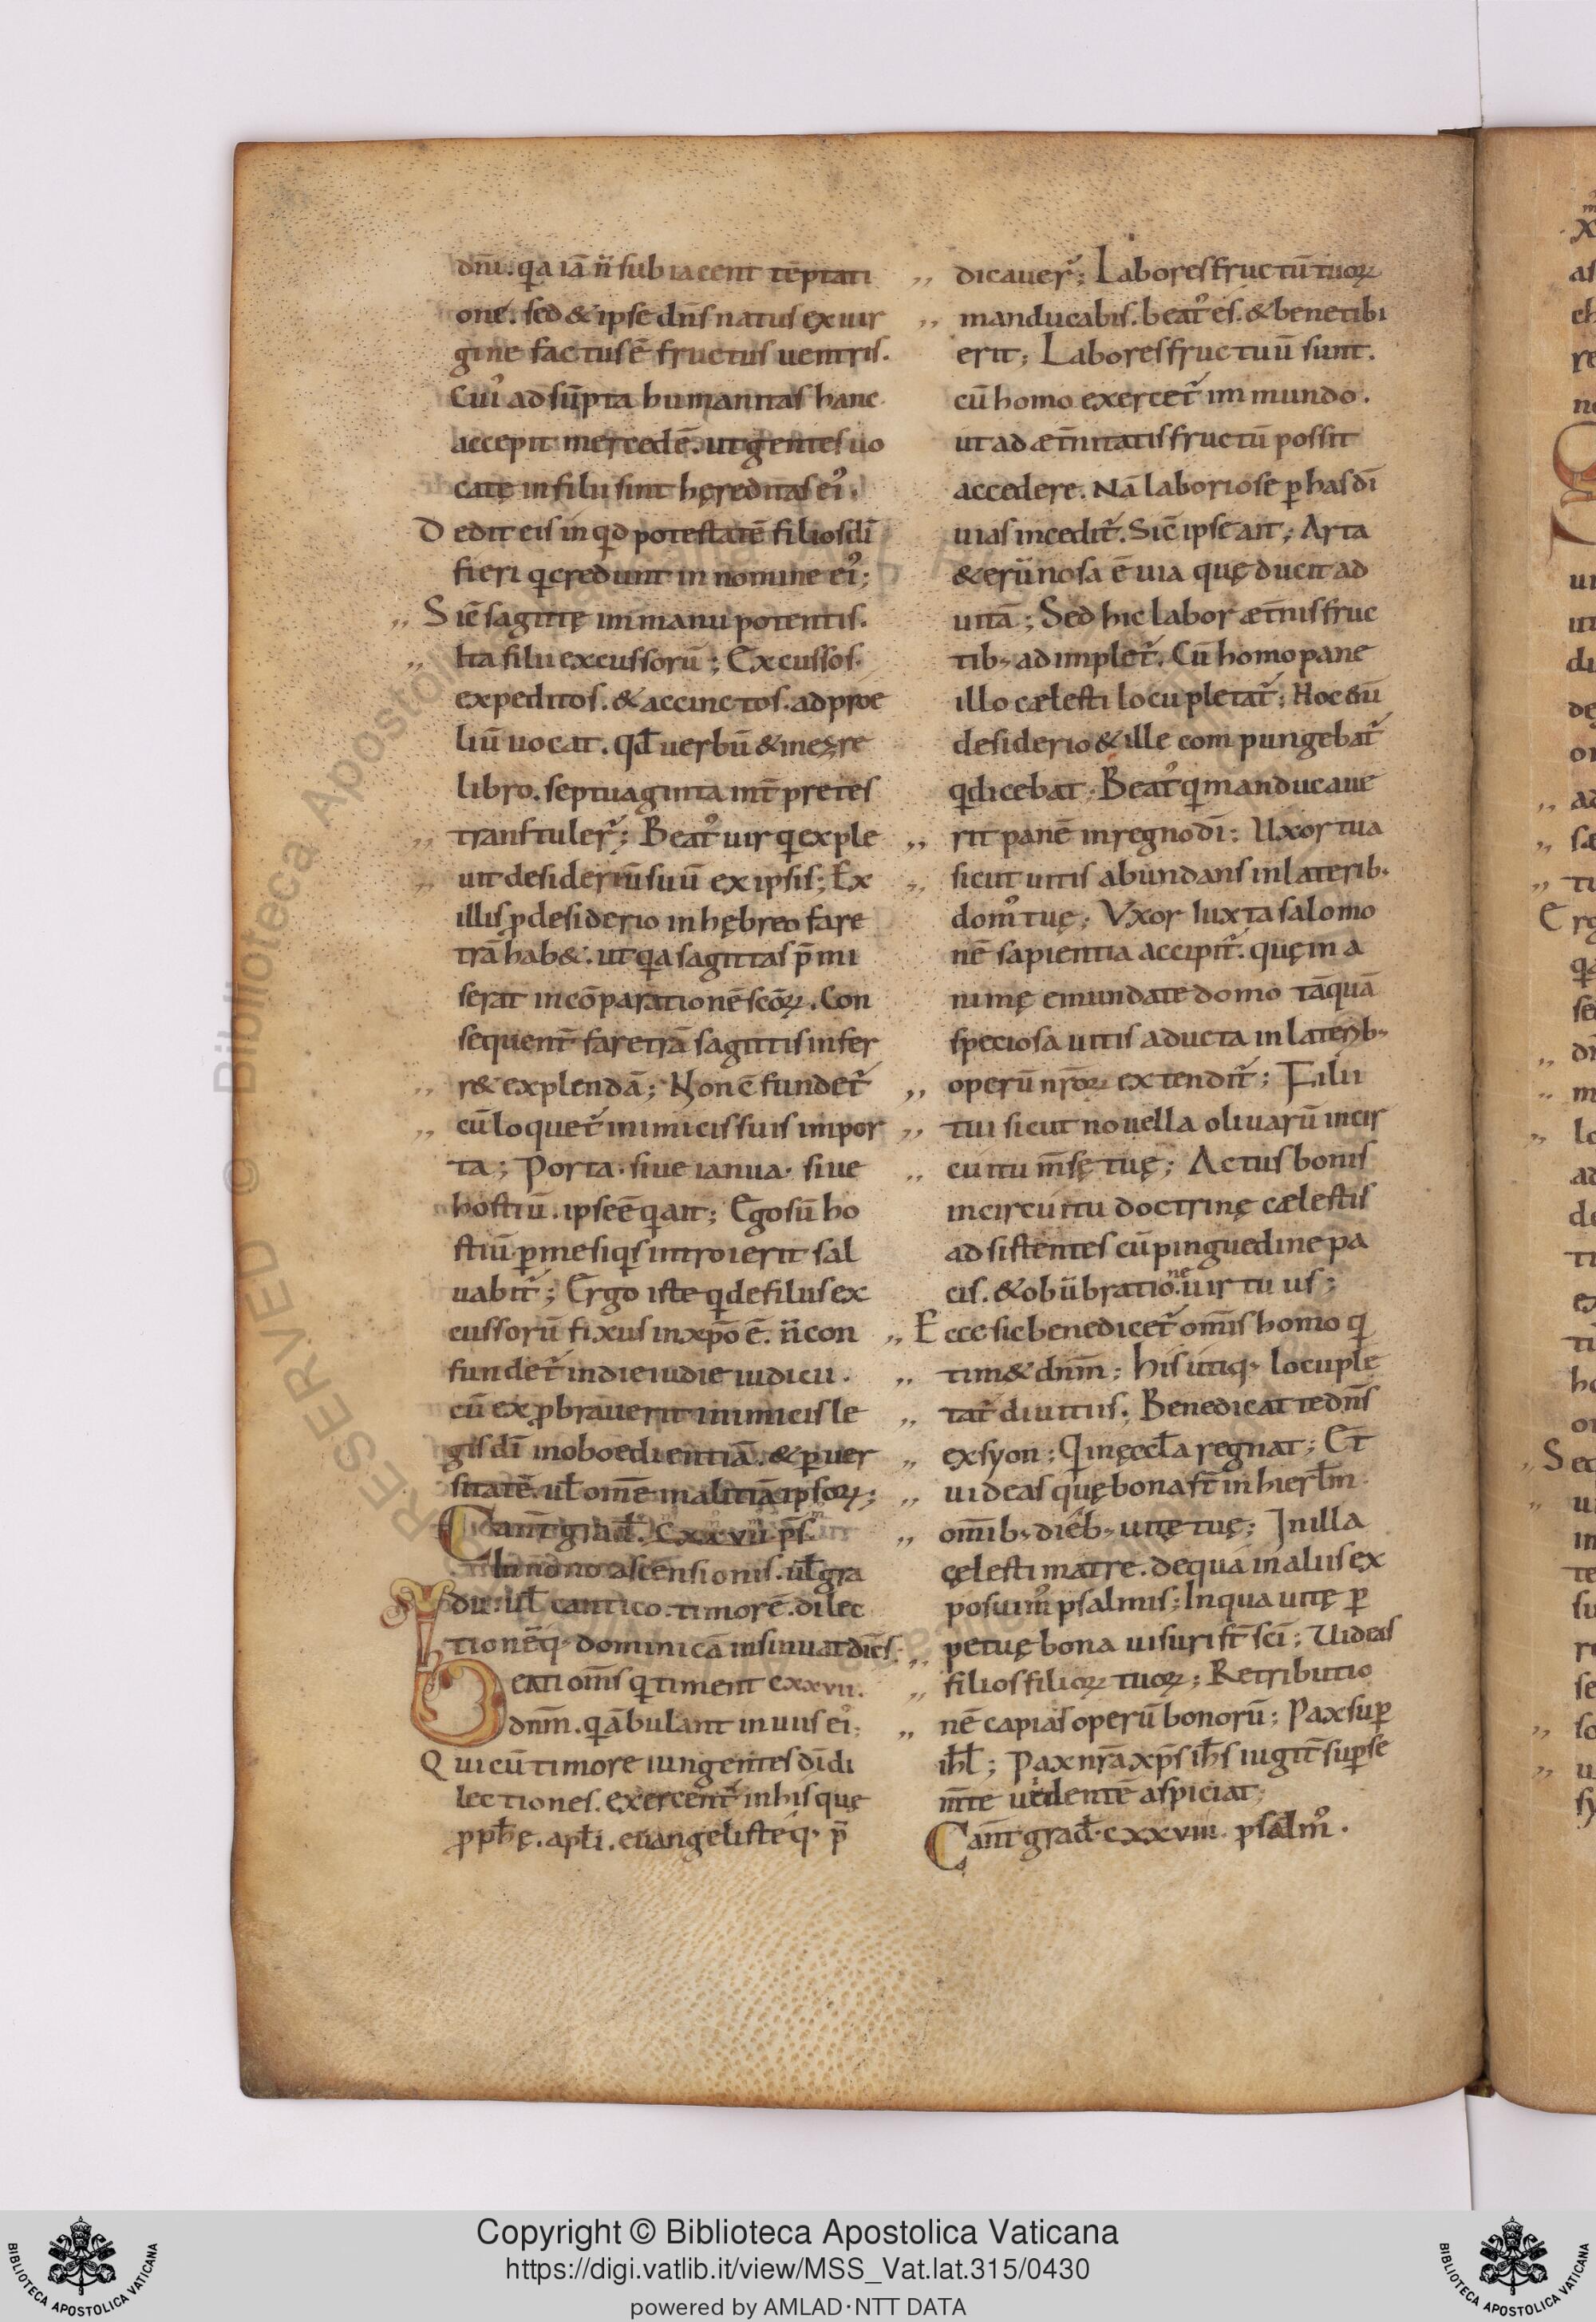 dn̄i. qa iā n̄ subiacent tēptati
one. sed & ipse dn̄s natus ex uir
gine factus ē fructus uentris.
Cui᾿ adsūpta humanitas hanc
accepit mercedē. ut gentes uo
catę in filii sint hęreditas ei᾿.
Dedit eis inqd potestatē filios dī
fieri q credunt in nomine ei᾿;
,, Sic̄ sagittę in manu potentis.
,, Ita filii excussorū; Excussos.
expeditos. & accinctos. ad proe
liū uocat. qd̄ uerbū & in ezre
libro. septuaginta int̄pretes
,, transtuler̄; Beat᾿ uir q exple
,, uit desideriū suū ex ipsis; Ex
illis p desiderio in hębreo fare
trā hab&. ut qa sagittas p̄mi
serat in cōparationē scōꝝ. Con
sequent̄ faretrā sagittis infer
,, r& explendā; Non c̄fundet̄
,, cū loquet̄ inimicis suis in por
ta; Porta. siue ianua. siue
hostiū. ipse ē q ait; Ego sū ho
stiū p me siqs introierit sal
uabit̄; Ergo iste q de filiis ex
cussorū fixus in xp̄o ē. n̄ con
fundet̄ in die iudicii.
cū exprobrauerit inimicis le
gis dī inoboedientiā. & puer
sitatē. ul̄ omē malitiā ipsoꝝ;
Cant̄ grad̄. CXXVII ps̄.
In nono ascensionis. ul̄ gra
du. ul̄ cantico. timorē. dilec
tionēq; dominicā insinuat dic̄s.
BEATI om̄s q timent cxxvii.
dnm̄. q ābulant in uiis ei᾿;
Qui cū timore iungentes dī di
lectiones. exercent̄ in his quę
pph̄ę. apl̄i. euangelisteq; p̄
,, dicauer̄; Labores fructū tuoꝝ
,, manducabis. beat᾿ es. & bene tibi
erit; Labores fructuū sunt.
cū homo exercet̄ in mundo.
ut ad æt̄nitatis fructū possit
accedere. Nā laboriose p has dī
uias incedit̄. Sic̄ ipse ait; Arta
& erūnosa ē uia quę ducit ad
uitā; Sed hic labor æt̄nis fruc
tib; adimplet̄. Cū homo pane
illo cælesti locupletat̄; Hoc &iū
desiderio & ille compungebat̄
q dicebat; Beat᾿ q manducaue
,, rit panē in regno dī: Uxor tua
,, sicut uitis abundans in laterib;
dom᾿ tuę; Vxor iuxta salomo
nē sapientia accipit̄. quę in a
nimę emundate domo tāquā
speciosa uitis aducta in laterib;
,, operū nr̄oꝝ extendit̄; Filii
,, tui sicut nouella oliuarū in cir
,, cuitu m̄sę tuę; Actus bonis
in circuitu doctrinę cælestis
adsistentes cū pinguedine pa
cis. & obūbratione uir tuus;
,, Ecce sic benedicet̄ om̄is homo q
,, tim& dnm̄; His utiq; locuple
,, tat̄ diuitiis; Benedicat te dn̄s
,, ex syon; Q in ęccl̄a regnat; Et
,, uideas quę bona st̄ in hierl̄m.
,, omīb; dieb; uitę tuę; In illa
çelesti matre. de qua in aliis ex
posuim᾿ psalmis; In qua uitę p
,, petuę bona uisuri st̄ sc̄i; Uideas
,, filios filioꝝ tuoꝝ; Retributio
,, nē capias operū bonorū; Pax sup
ihl̄; Pax nr̄a xp̄s ih̄s iugit̄ sup se
m̄te uidentē aspiciat;
Cant̄ grad̄. cxxviii. psalm᾿.
Copyright © Biblioteca Apostolica Vaticana
https://digi.vatlib.it/view/MSS_Vat.lat.315/0430
powered by AMLAD·NTT DATA
BIBLIOTECA APOSTOLICA VATICANA
BIBLIOTECA APOSTOLICA VATICANA